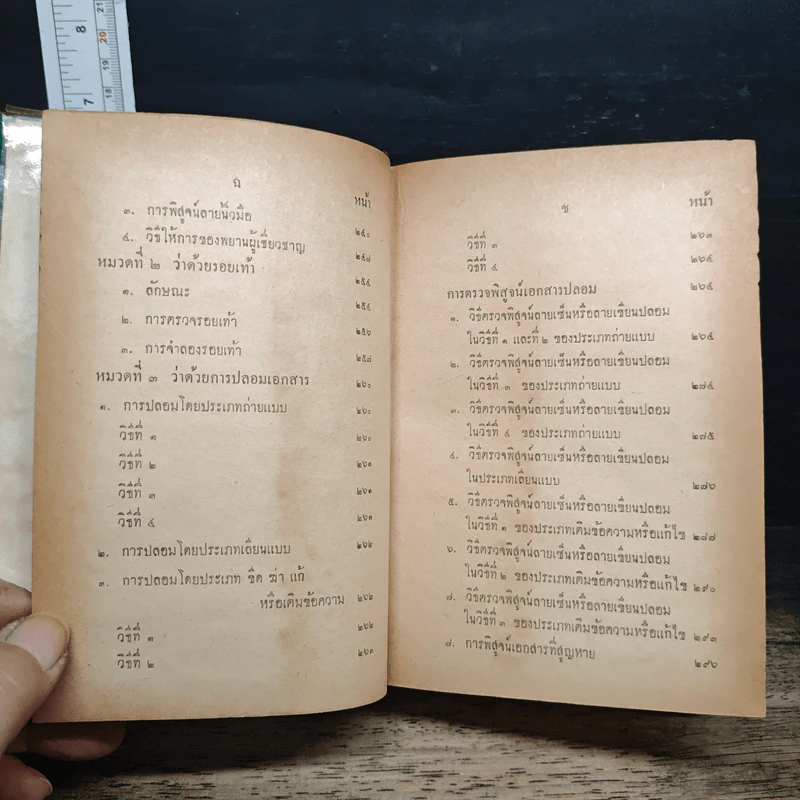 8
7
21
20
19
18
ฉ
หน้า
๓. การพิสูจน์ลายนิ้วมือ ๒๔๐
๔. วิธีให้การของพยานผู้เชี่ยวชาญ ๒๔๘
หมวดที่ ๒ ว่าด้วยรอยเท้า ๒๕๔
๑. ลักษณะ ๒๕๔
๒. การตรวจรอยเท้า ๒๕๖
๓. การจำลองรอยเท้า ๒๕๗
หมวดที่ ๓ ว่าด้วยการปลอมเอกสาร ๒๖๐
๑. การปลอมโดยประเภทถ่ายแบบ ๒๖๐
วิธีที่ ๑ ๒๖๐
วิธีที่ ๒ ๒๖๑
วิธีที่ ๓ ๒๖๑
วิธีที่ ๔ ๒๖๑
๒. การปลอมโดยประเภทเลียนแบบ ๒๖๒
๓. การปลอมโดยประเภท ขีด ฆ่า แก้
หรือเติมข้อความ ๒๖๒
วิธีที่ ๑ ๒๖๒
วิธีที่ ๒ ๒๖๓
ช
หน้า
วิธีที่ ๓ ๒๖๓
วิธีที่ ๔ ๒๖๔
การตรวจพิสูจน์เอกสารปลอม ๒๖๔
๑. วิธีตรวจพิสูจน์ลายเซ็นหรือลายเขียนปลอม
ในวิธีที่ ๑ และที่ ๒ ของประเภทถ่ายแบบ ๒๖๕
๒. วิธีตรวจพิสูจน์ลายเซ็นหรือลายเขียนปลอม
ในวิธีที่ ๓ ของประเภทถ่ายแบบ ๒๗๔
๓. วิธีตรวจพิสูจน์ลายเซ็นหรือลายเขียนปลอม
ในวิธีที่ ๔ ของประเภทถ่ายแบบ ๒๗๕
๔. วิธีตรวจพิสูจน์ลายเซ็นหรือลายเขียนปลอม
ในประเภทเลียนแบบ ๒๗๖
๕. วิธีตรวจพิสูจน์ลายเซ็นหรือลายเขียนปลอม
ในวิธีที่ ๑ ของประเภทเติมข้อความหรือแก้ไข ๒๘๗
๖. วิธีตรวจพิสูจน์ลายเซ็นหรือลายเขียนปลอม
ในวิธีที่ ๒ ของประเภทเติมข้อความหรือแก้ไข ๒๙๐
๗. วิธีตรวจพิสูจน์ลายเซ็นหรือลายเขียนปลอม
ในวิธีที่ ๓ ของประเภทเติมข้อความหรือแก้ไข ๒๙๓
๘. การพิสูจน์เอกสารที่สูญหาย ๒๙๖